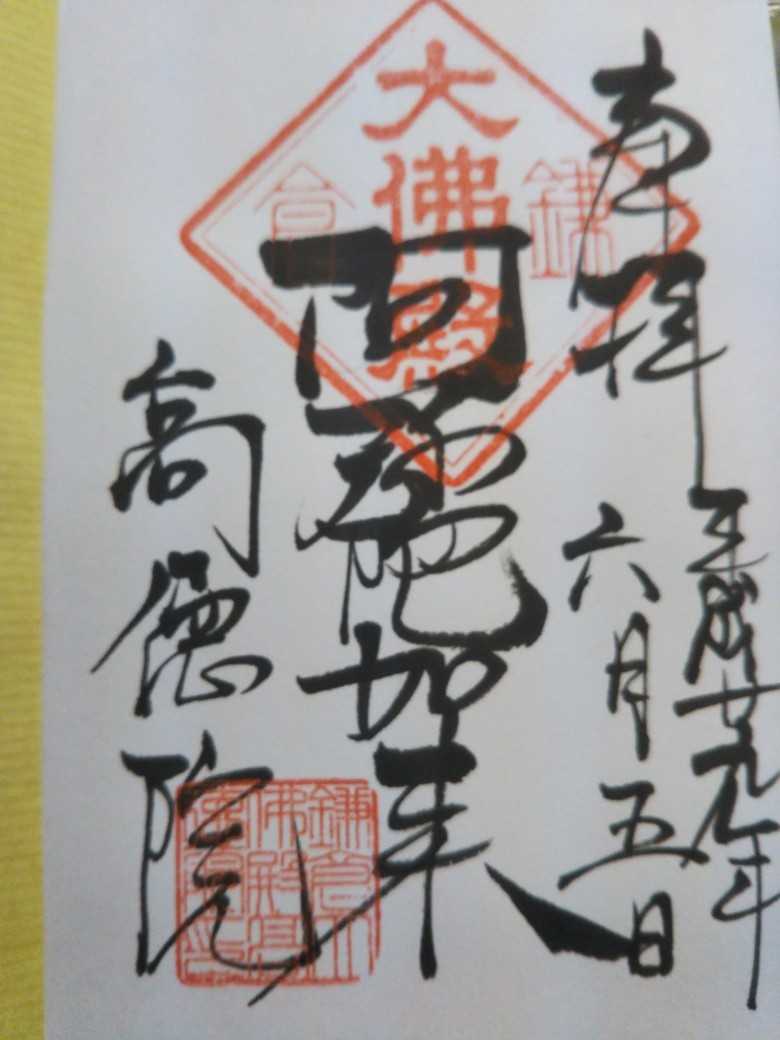 奉拝
平成廿九年
六月五日
鎌倉
大佛殿
阿弥陀如来
高徳院
鎌倉大
佛殿高
徳院印